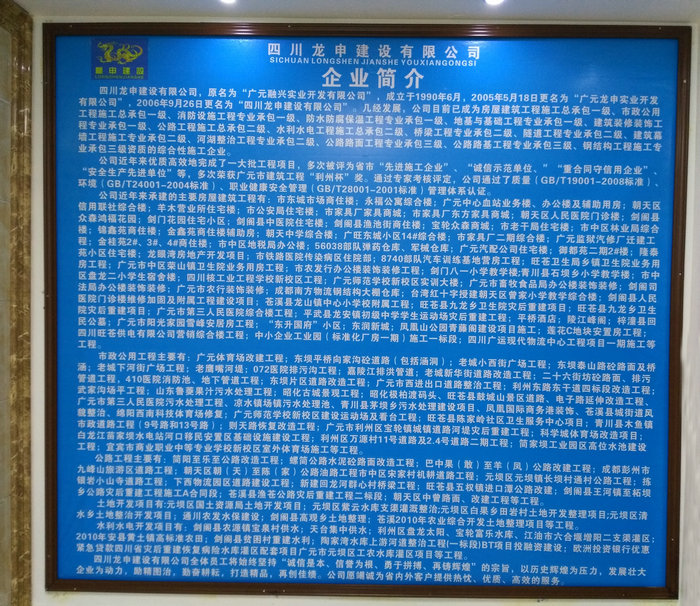 四川龙申建设有限公司
SICHUAN LONGSHEN JIANSHE YOUXIANGONGSI
龍申建設
LONGSHENJIANSHE
企业简介
四川龙申建设有限公司，原名为“广元融兴实业开发有限公司”，成立于1990年6月，2005年5月18日更名为“广元龙申实业开发
有限公司”，2006年9月26日更名为“四川龙申建设有限公司”。几经发展，公司目前已成为房屋建筑工程施工总承包一级、市政公用
工程施工总承包一级、消防设施工程专业承包一级、防水防腐保温工程专业承包一级、地基与基础工程专业承包一级、建筑装修装饰工
程专业承包一级、公路工程施工总承包二级、水利水电工程施工总承包二级、桥梁工程专业承包二级、隧道工程专业承包二级、建筑幕
墙工程施工专业承包二级、河湖整治工程专业承包二级、公路路面工程专业承包三级、公路路基工程专业承包三级、钢结构工程施工专
业承包三级资质的综合性施工企业。
公司近年来优质高效地完成了一大批工程项目，多次被评为省市“先进施工企业”、“诚信示范单位、”“重合同守信用企业”、
“安全生产先进单位”等，多次荣获广元市建筑工程“利州杯”奖。通过专家考核评定，公司通过了质量（GB/T19001-2008标准）、
环境（GB/T24001-2004标准）、职业健康安全管理（GB/T28001-2001标准）管理体系认证。
公司近年来承建的主要房屋建筑工程有：市东城市场商住楼；永福公寓综合楼；广元中心血站业务楼、办公楼及辅助用房；朝天区
信用联社综合楼；羊木营业所住宅楼；市公安局住宅楼；市家具厂家具商城；市家具厂东方家具商城；朝天区人民医院门诊楼；剑阁县
众森鸿福花园；剑门花园住宅小区；剑阁县中医院住宅楼；剑阁县渔池街商住楼；宝轮众森商城；市老干局住宅楼；市中区林业局综合
楼；锦鑫苑商住楼；金鑫苑商住楼辅助房；朝天中学综合楼；广旺东城小区14#综合楼；市家具厂二期综合楼；广元监狱汽修厂迁建工
程；金桂苑2#、3#、4#商住楼；市中区地税局办公楼；56038部队弹药仓库、军械仓库；广元汽配公司住宅楼；御都苑二期2#楼；隆泰
苑小区住宅楼；龙眼湾房地产开发项目；市铁路医院传染病区住院部；8740部队汽车训练基地营房工程；旺苍卫生局乡镇卫生院业务用
房工程；广元市中区荣山镇卫生院业务用房工程；市农发行办公楼装饰装修工程；剑门八一小学教学楼;青川县石坝乡小学教学楼；市中
区盘龙二小学生宿舍楼；四川核工业工程学校新校区工程；广元师范学校新校区实训大楼；广元市畜牧食品局办公楼装饰装修；剑阁司
法局办公楼装饰装修；广元市农行装饰装修；成都南方物流钢结构大棚仓库；台湾红十字授建朝天区曾家小学教学综合楼；剑阁县人民
医院门诊楼维修加固及附属工程建设项目；苍溪县龙山镇中心小学校附属工程；旺苍县九龙乡卫生院灾后重建项目；旺苍县九龙乡卫生
院灾后重建项目；广元市第三人民医院综合楼工程；平武县龙安镇初级中学学生运动场灾后重建工程；平桥酒店；陵江峰阁；梓潼县回
民公墓；广元市阳光家园雪峰安居房工程；“东升国府”小区；东润新城；凤凰山公园青藤阁建设项目施工；莲花C地块安置房工程；
四川旺苍供电有限公司营销综合楼工程；中小企业工业园（标准化厂房一期）施工一标段；四川广运现代物流中心工程项目一期施工等
工程。
市政公用工程主要有：广元体育场改建工程；东坝平桥向家沟砼道路（包括涵洞）；老城小西街广场工程；东坝泰山路砼路面及桥
涵；老城下河街广场工程；老鹰嘴河堤；072医院排污沟工程；嘉陵江排洪管道；老城新华街道路改建工程；二十六街坊砼路面、排污
管道工程，410医院消防池、地下管道工程；东坝片区道路改造工程；广元市西进出口道路整治工程；利州东路东干道四标段改造工程；
武家沟场平工程；山东鲁菱果汁污水处理工程；昭化古城景观工程；昭化银柏渡码头、旺苍县鼓城山景区道路、电子路延伸改造工程、
广元市第三人民医院污水处理工程、凉水镇场镇污水处理池、青川县茅坝乡污水处理建设项目、凤凰国际商务港装饰、苍溪县城街道风
貌整治、绵阳西南科技体育场修复；广元师范学校新校区建设运动场及看台工程；旺苍县陈家岭社区卫生服务中心项目；青川县木鱼镇
市政道路工程（9号路和13号路）；则天路恢复改造工程；广元市利州区宝轮镇城镇道路河堤灾后重建工程；科学城体育场改造项目；
白龙江苗家坝水电站河口移民安置区基础设施建设工程；利州区万源村11号道路及2.4号道路二期工程；简家坝工业园区高位水池建设
工程；宜宾市商业职业中等专业学校新校区室外体育场施工等工程。
公路工程主要有：荥阳至乐至公路改造工程；螺简公路水泥砼路面改造工程；巴中果（敢）至羊（凤）公路改建工程；成都彭州市
九峰山旅游区道路工程；朝天区朝（天）至陈（家）公路油路工程市中区宋家村机耕道路工程；元坝区元坝镇长坝村通村公路工程；拣
银岩小山寺道路工程；下西物流园区道路建设工程；新建回龙河群心村桥梁工程；旺苍县五权镇进口潭公路改建；剑阁县王河镇至柘坝
乡公路灾后重建工程施工A合同段；苍溪县漁苍公路灾后重建工程二标段；朝天区中曾路面、改建工程等工程。
土地开发项目有:元坝区国土资源局土地开发项目；元坝区紫云水库支渠灌溉整治;元坝区白果乡田岩村土地开发整理项目;元坝区清
水乡土地整治开发项目；通川农发水保建设；剑阁县高观乡土地整理；苍溪2010年农业综合开发土地整理项目等工程。
水利水电开发项目有：剑阁县农源镇宝泉村供水；天台集中供水；利州区盘龙太阳、宝轮富乐水库、江油市六合堰增阳二支渠灌区；
2010年安县黄土镇高标准农田；剑阁县贫困村重建水利；陶家湾水库上游河道整治工程(一标段)BT项目投融资建设；欧洲投资银行优惠
紧急贷款四川省灾后重建恢复病险水库灌区配套项目广元市元坝区工农水库灌区项目等工程。
四川龙申建设有限公司全体员工将始终坚持“诚信是本、信誉为根、勇于拼搏、再铸辉煌”的宗旨，以历史辉煌为压力，发展壮大
企业为动力，励精图治，勤奋耕耘，打造精品，再创佳绩。公司愿竭诚为省内外客户提供热忱、优质、高效的服务。